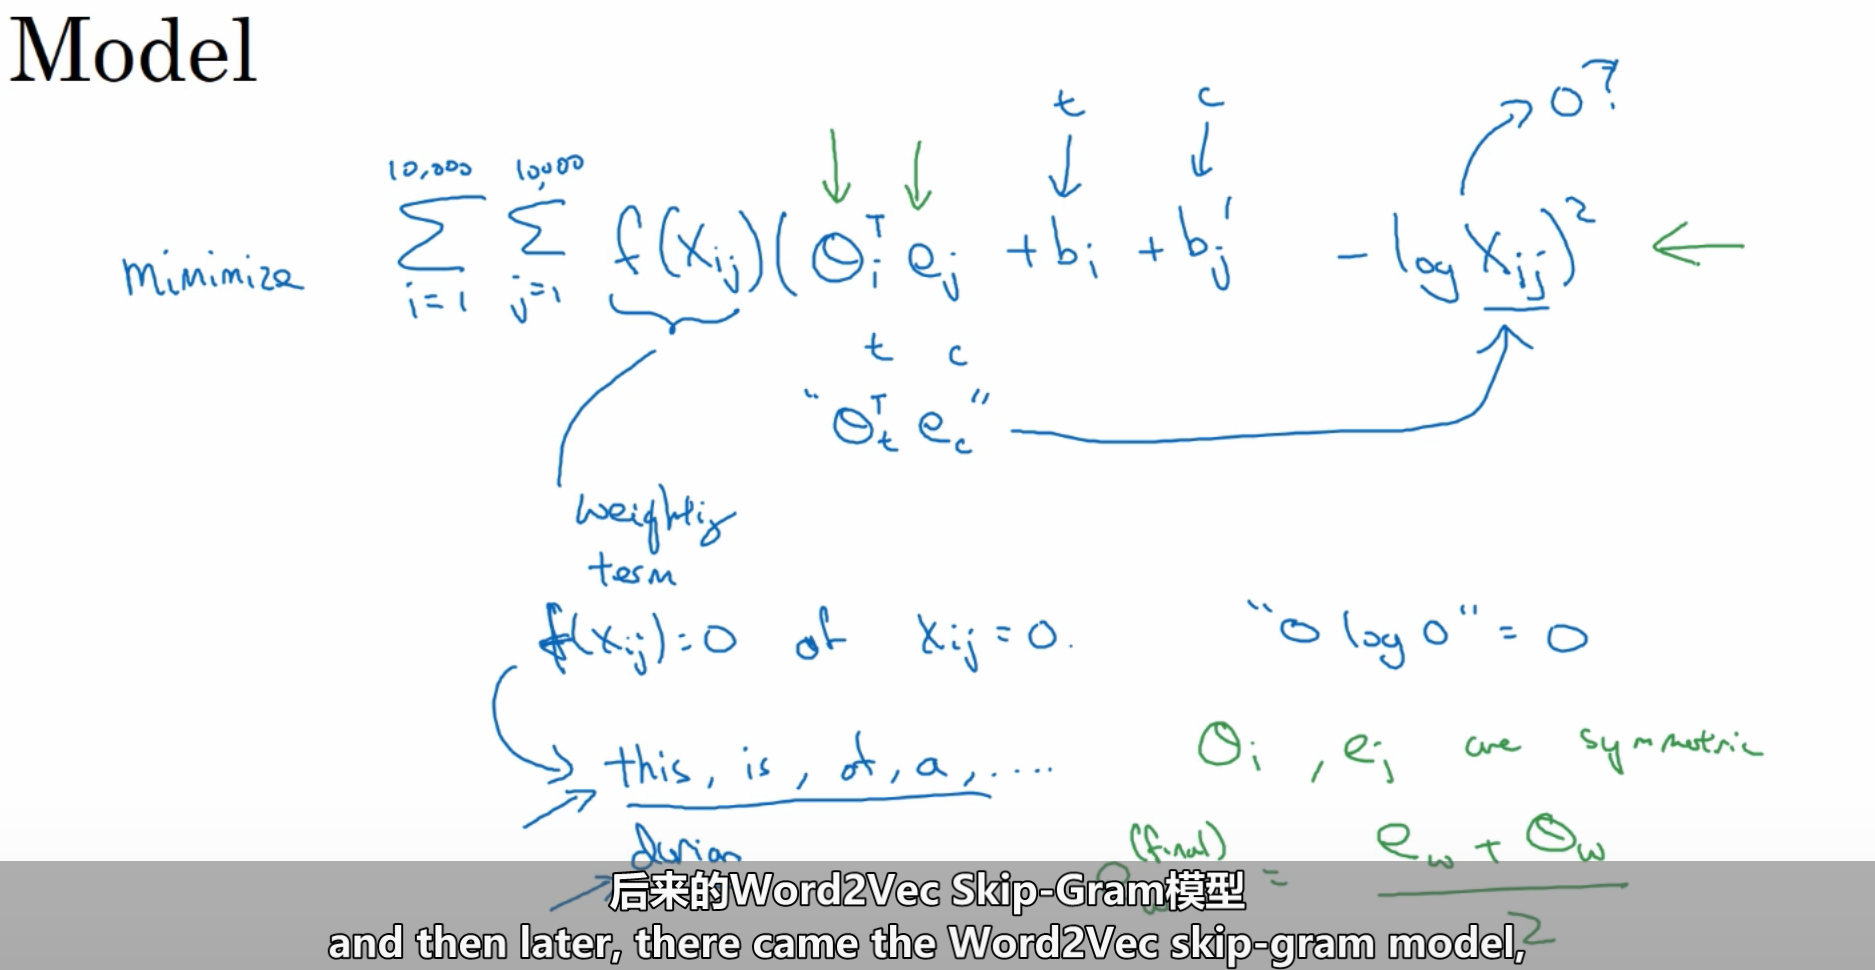 Model
t c 0?
10,000 10,000
minimize Σ Σ f(Xij)(θiᵀ ej + bi + bj' - log Xij)²
i=1 j=1
t c
"θtᵀ ec"
weighting
term
f(Xij)=0 at Xij=0. "0 log 0" = 0
this, is, of, a, .... θi, ej are symmetric
durian
(final) = ew + θw
2
后来的Word2Vec Skip-Gram模型
and then later, there came the Word2Vec skip-gram model,